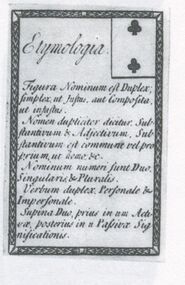 Etymologia.
Figura Nominum est Duplex,
simplex, ut Justus, aut Composita,
ut injustus.
Nomen dupliciter dicitur, Sub-
stantivum & Adjectivum, Sub-
stantivum est commune vel pro-
prium, ut homo, &c.
Nominum numeri sunt Duo,
Singularis & Pluralis.
Verbum duplex, Personale &
Impersonale.
Supina Duo, prius in um Acti-
væ, posterius in u Passivæ Sig-
nificationis.